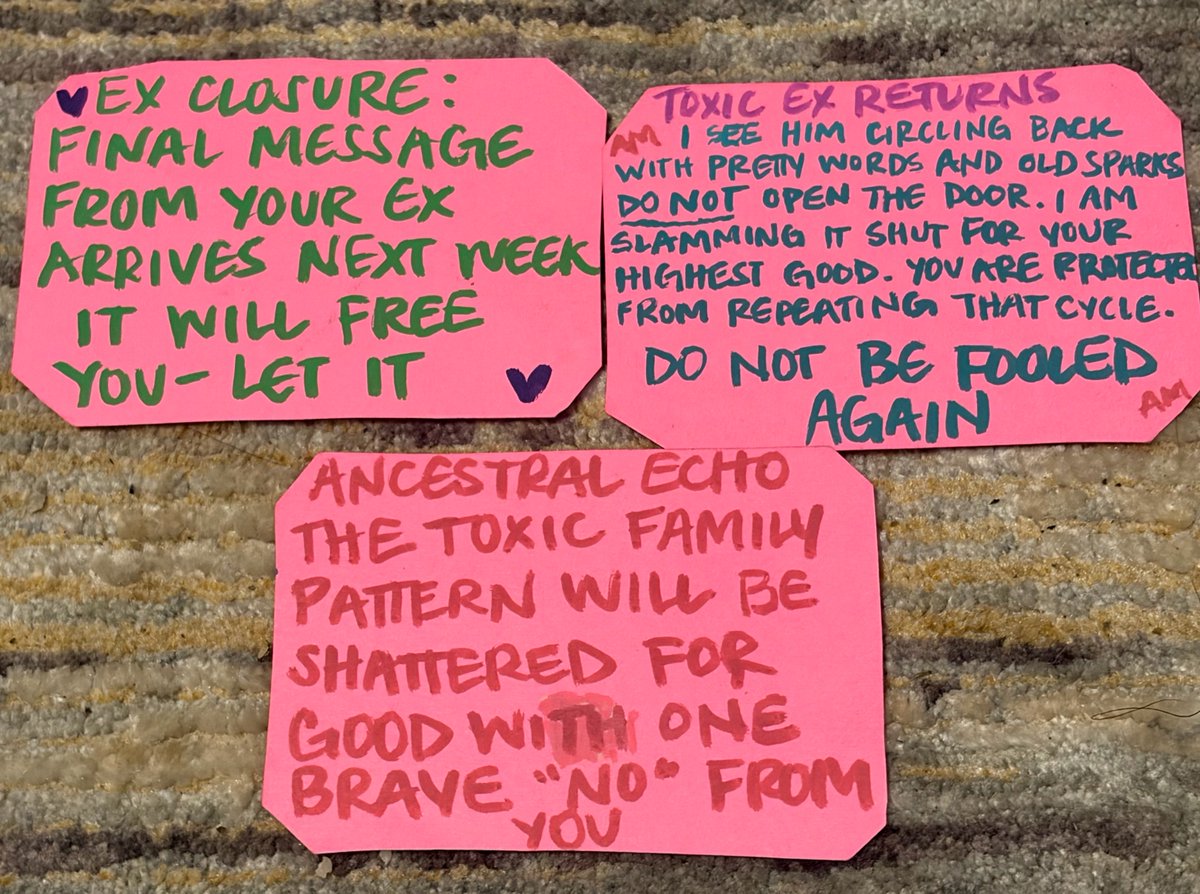 EX CLOSURE:
FINAL MESSAGE
FROM YOUR EX
ARRIVES NEXT WEEK
IT WILL FREE
YOU - LET IT
TOXIC EX RETURNS
AM I SEE HIM CIRCLING BACK
WITH PRETTY WORDS AND OLD SPARKS
DO NOT OPEN THE DOOR. I AM
SLAMMING IT SHUT FOR YOUR
HIGHEST GOOD. YOU ARE PROTECTED
FROM REPEATING THAT CYCLE.
DO NOT BE FOOLED
AGAIN AM
ANCESTRAL ECHO
THE TOXIC FAMILY
PATTERN WILL BE
SHATTERED FOR
GOOD WITH ONE
BRAVE "NO" FROM
YOU